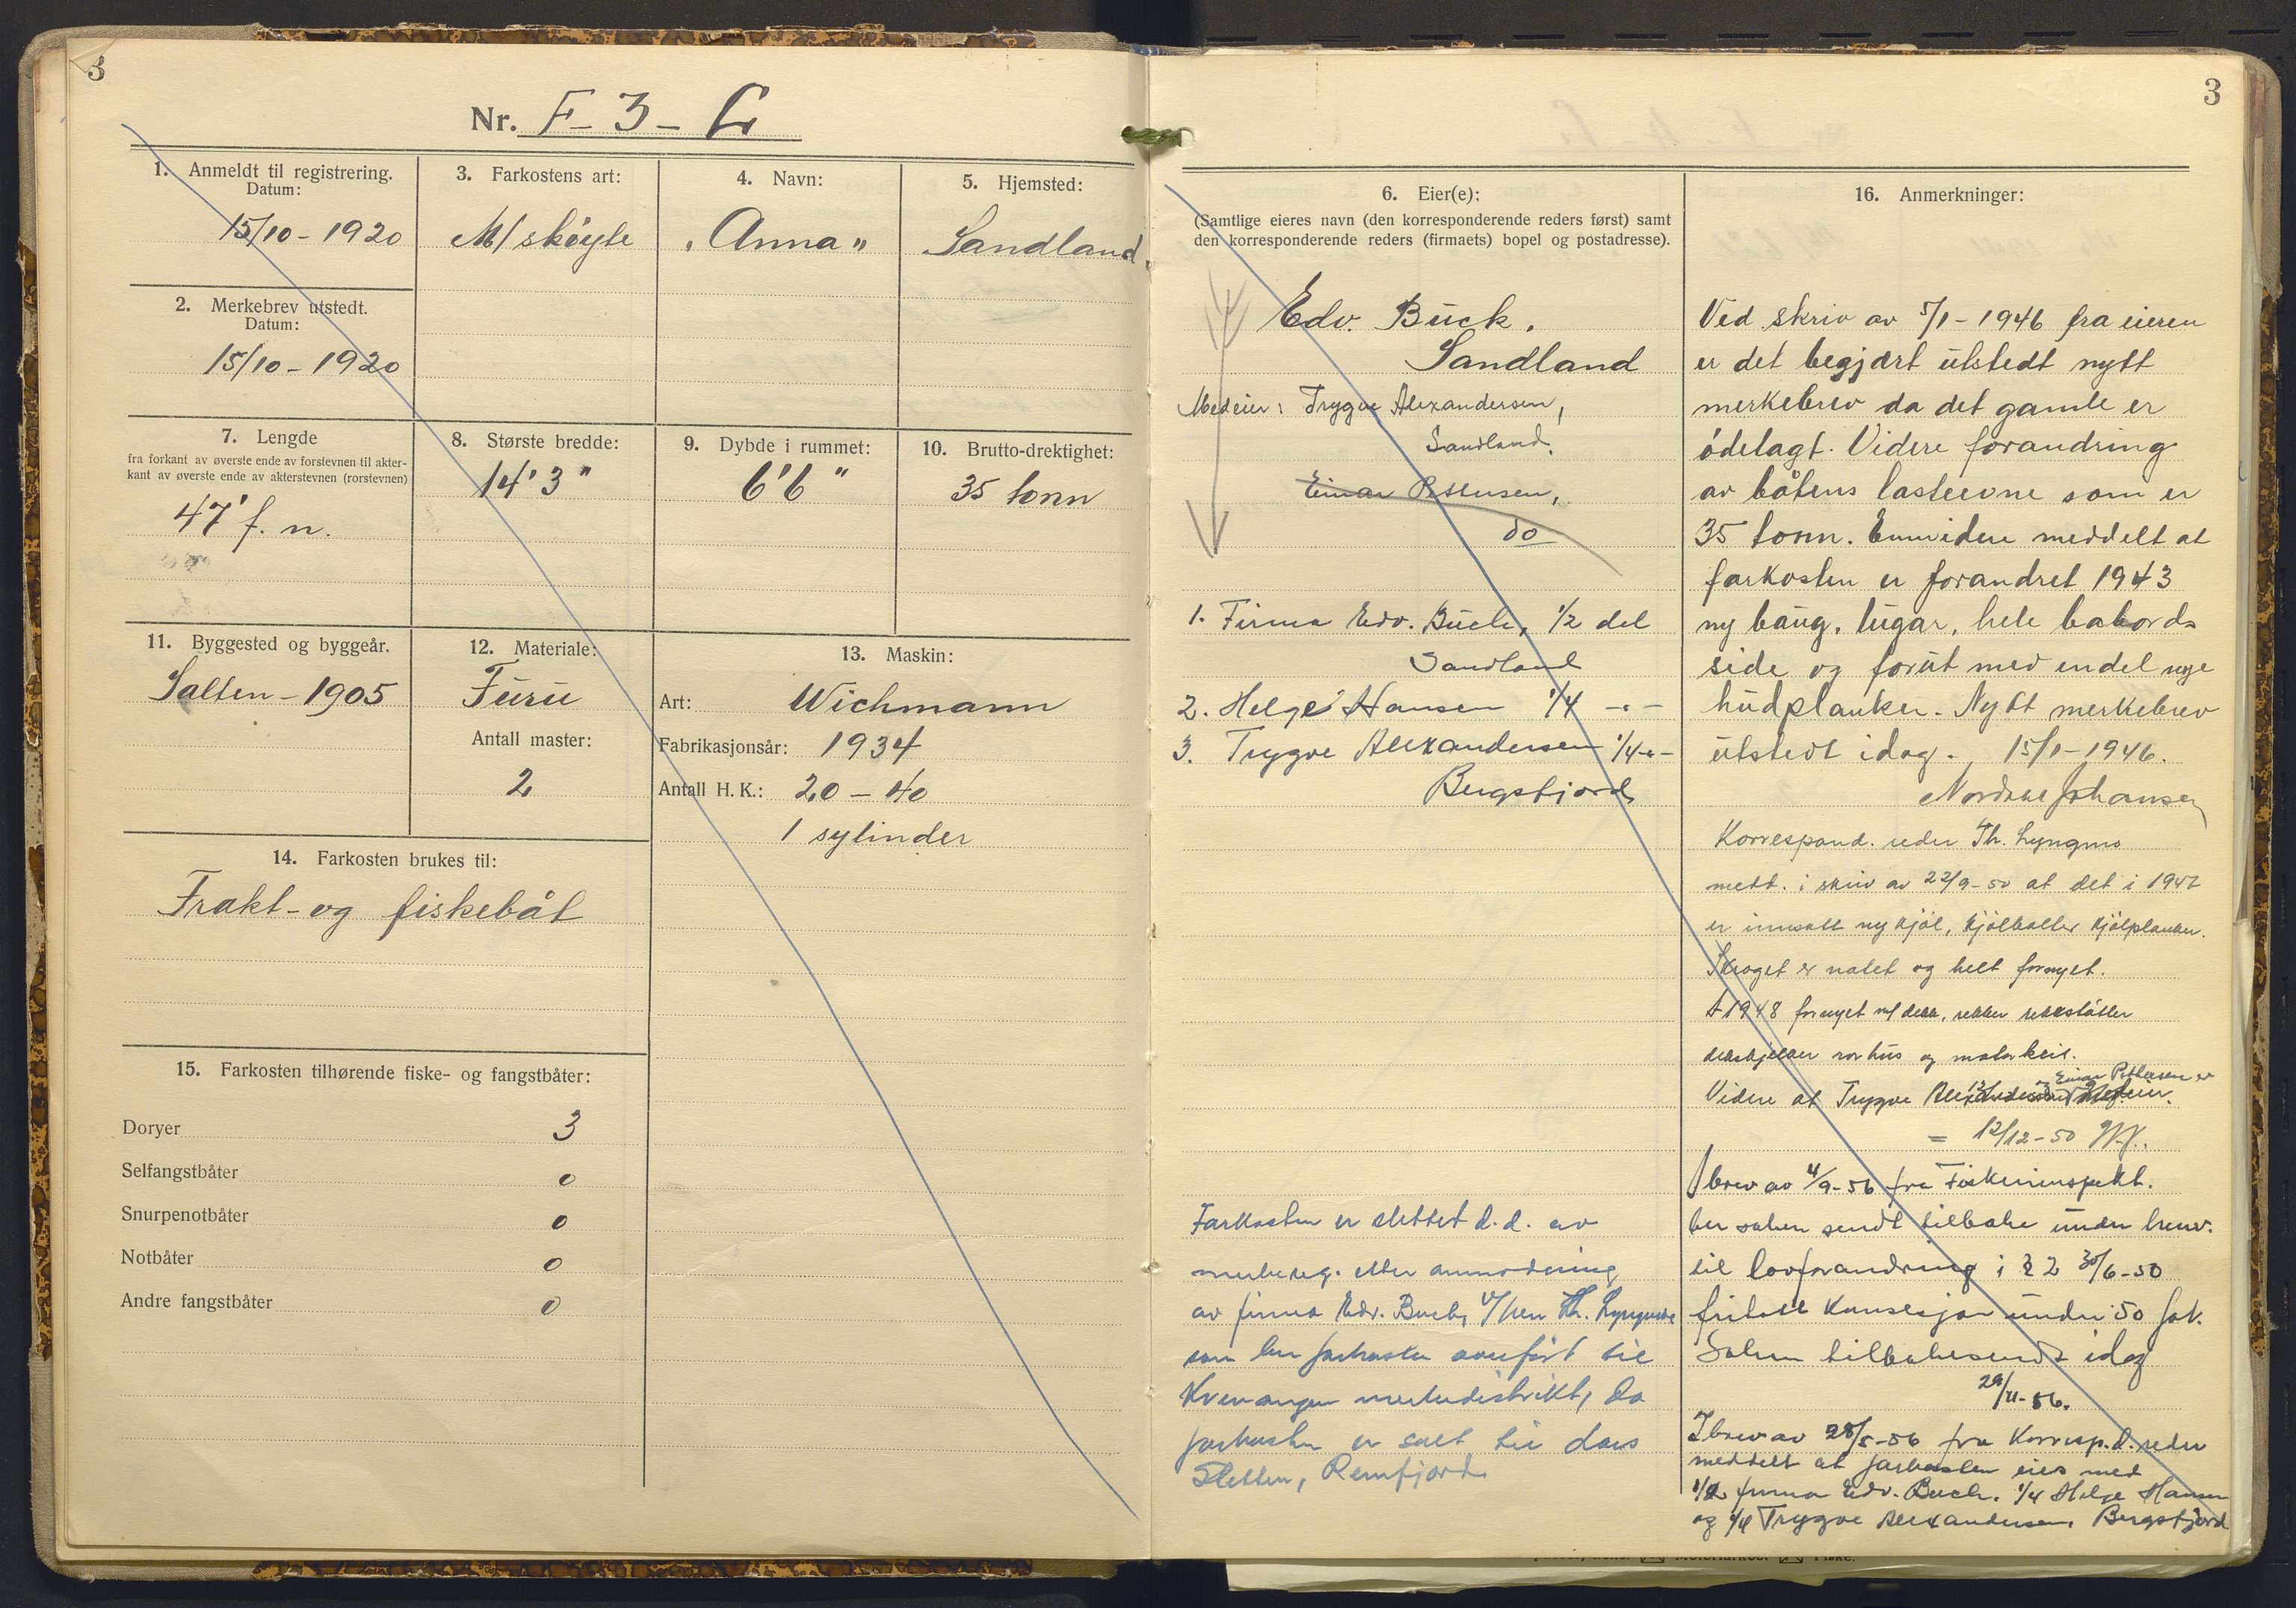 3
Nr. F-3-L
1. Anmeldt til registrering.
Datum:
15/10-1920
2. Merkebrev utstedt.
Datum:
15/10-1920
3. Farkostens art:
M/skøyte
4. Navn:
"Anna"
5. Hjemsted:
Sandland
7. Lengde
fra forkant av øverste ende av forstevnen til akter-
kant av øverste ende av akterstevnen (rorstevnen)
47' f. n.
8. Største bredde:
14' 3"
9. Dybde i rummet:
6' 6"
10. Brutto-drektighet:
35 tonn
11. Byggested og byggeår.
Salten-1905
12. Materiale:
Furu
Antall master:
2
13. Maskin:
Art: Wichmann
Fabrikasjonsår: 1934
Antall H. K.: 20-40
1 sylinder
14. Farkosten brukes til:
Frakt- og fiskebåt
15. Farkosten tilhørende fiske- og fangstbåter:
Doryer 3
Selfangstbåter 0
Snurpenotbåter 0
Notbåter 0
Andre fangstbåter 0
3
6. Eier(e):
(Samtlige eieres navn (den korresponderende reders først) samt
den korresponderende reders (firmaets) bopel og postadresse).
Edv. Buck.
Sandland
Medeier: Trygve Alexandersen,
Sandland.
Einar Pettersen,
do
1. Firma Edv. Buck, 1/2 del
Sandland
2. Helge Hansen 1/4 -"-
3. Trygve Alexandersen 1/4 -"-
Bergsfjord
Farkosten er slettet d.d. av
merkereg. etter anmodning
av firma Edv. Buck, v/herr Th. Lyngmo
som ber farkosten overført til
Kvenangen merkedistrikt, da
farkosten er solt til
Sletten, Reinfjord
16. Anmerkninger:
Ved skriv av 5/1-1946 fra eieren
er det begjært utstedt nytt
merkebrev da det gamle er
ødelagt. Videre forandring
av båtens lasteevne som er
35 tonn. Ennvidere meddelt at
farkosten er forandret 1943
ny baug, lugar, hele babords
side og forut med endel nye
hudplanker. Nytt merkebrev
utstedt idag. 15/1-1946.
Johansen
Korrespond. reder Th. Lyngmo
medd. i skriv av 22/9-50 at det i 1947
er innsatt ny kjøl, kjølbolter kjølplanker.
Skroget er natet og helt fornyet.
I 1948 fornyet m/ dekk, rekker rekkstøtter
dekksbjelker rorhus og motorkeis.
Videre at Trygve Alexandersen og Einar Pettersen er
medeier.
= 12/12-50
I brev av 4/9-56 fra Fiskeriinspekt.
ber saken sendt tilbake under henv.
til lovforandring i § 2 30/6-50
fritatt konsesjon under 50 fot.
Saken tilbakesendt idag
29/11-56.
I brev av 28/5-56 fra Korresp.d. reder
meddelt at farkosten eies med
1/2 firma Edv. Buck. 1/4 Helge Hansen
og 1/4 Trygve Alexandersen, Bergsfjord